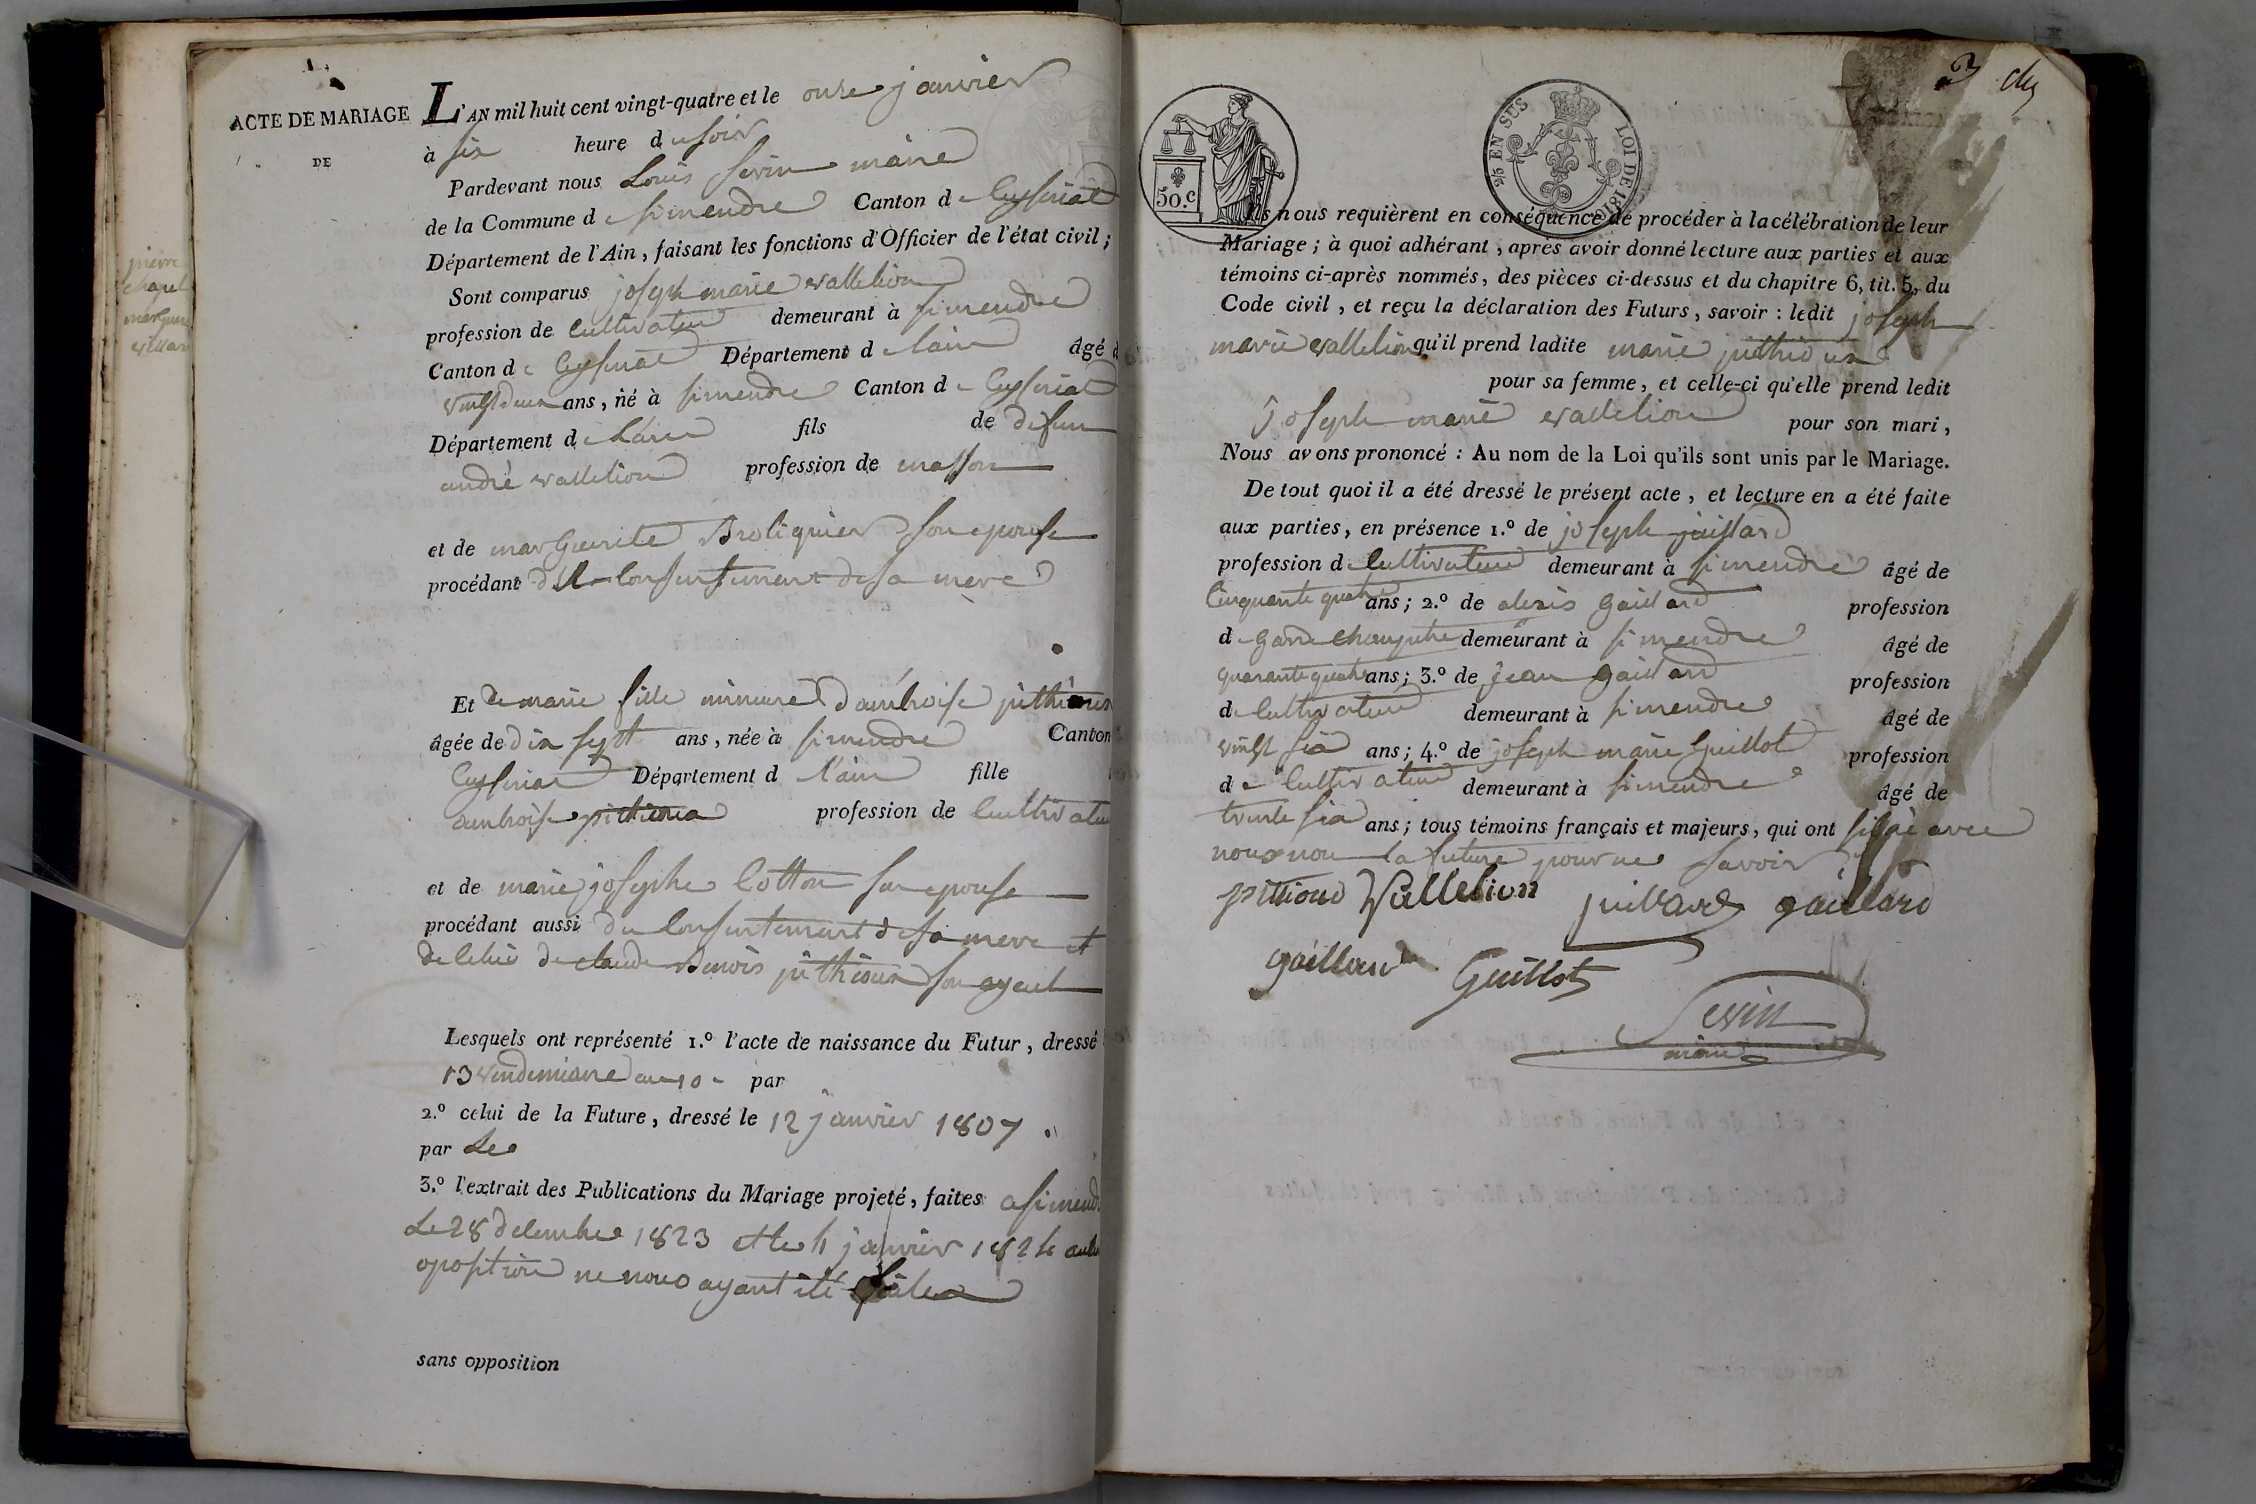 ACTE DE MARIAGE
DE
L'AN mil huit cent vingt-quatre et le onze janvier
à six heure du soir
Pardevant nous Louis Sevin maire
de la Commune de simendre Canton de Ceyseriat
Département de l'Ain, faisant les fonctions d'Officier de l'état civil;
Sont comparus joseph marie vallelion
profession de Cultivateur demeurant à simendre
Canton de Ceyseriat Département de l'ain âgé d
vingt deux ans, né à simendre Canton de Ceyseriat
Département de l'ain fils de defun
andré vallelion profession de masson
et de marguerite Broliquier son epouse
procédant du Consentement de sa mere
Et de marie fille mineure d'ambroise pithioux
âgée de dix sept ans, née à simendre Canton
Ceyseriat Département d l'ain fille
ambroise pithioux profession de Cultivateu
et de marie josephe Cotton son epouse
procédant aussi du Consentement de sa mere et
de Celui de claude Benois pithioux son ayeul
Lesquels ont représenté 1.º l'acte de naissance du Futur, dressé
13 vendemiaire an 10 par
2.º celui de la Future, dressé le 12 janvier 1807
par Le
3.º l'extrait des Publications du Mariage projeté, faites a simend
Le 28 decembre 1823 et le 4 janvier 1824
oposition ne nous ayant été faite
sans opposition
pierre
marguer
3
50.c
2/5 EN SUS LOI DE 1816
Ils nous requièrent en conséquence de procéder à la célébration de leur
Mariage; à quoi adhérant, après avoir donné lecture aux parties et aux
témoins ci-après nommés, des pièces ci-dessus et du chapitre 6, tit. 5, du
Code civil, et reçu la déclaration des Futurs, savoir: ledit joseph
marie vallelion qu'il prend ladite marie pithioux
pour sa femme, et celle-ci qu'elle prend ledit
joseph marie vallelion pour son mari,
Nous avons prononcé: Au nom de la Loi qu'ils sont unis par le Mariage.
De tout quoi il a été dressé le présent acte, et lecture en a été faite
aux parties, en présence 1.º de joseph juillard
profession de Cultivateur demeurant à simendre âgé de
Cinquante quatre ans; 2.º de alexis gaillard profession
de garde champetre demeurant à simendre âgé de
quarante quatre ans; 3.º de jean gaillard profession
de Cultivateur demeurant à simendre âgé de
vingt six ans; 4.º de joseph marie Guillot profession
de Cultivateur demeurant à simendre âgé de
trente six ans; tous témoins français et majeurs, qui ont signé avec
nous non la future pour ne savoir
pithioud Vallelion juillard gaillard
gaillard Guillot
Sevin
maire